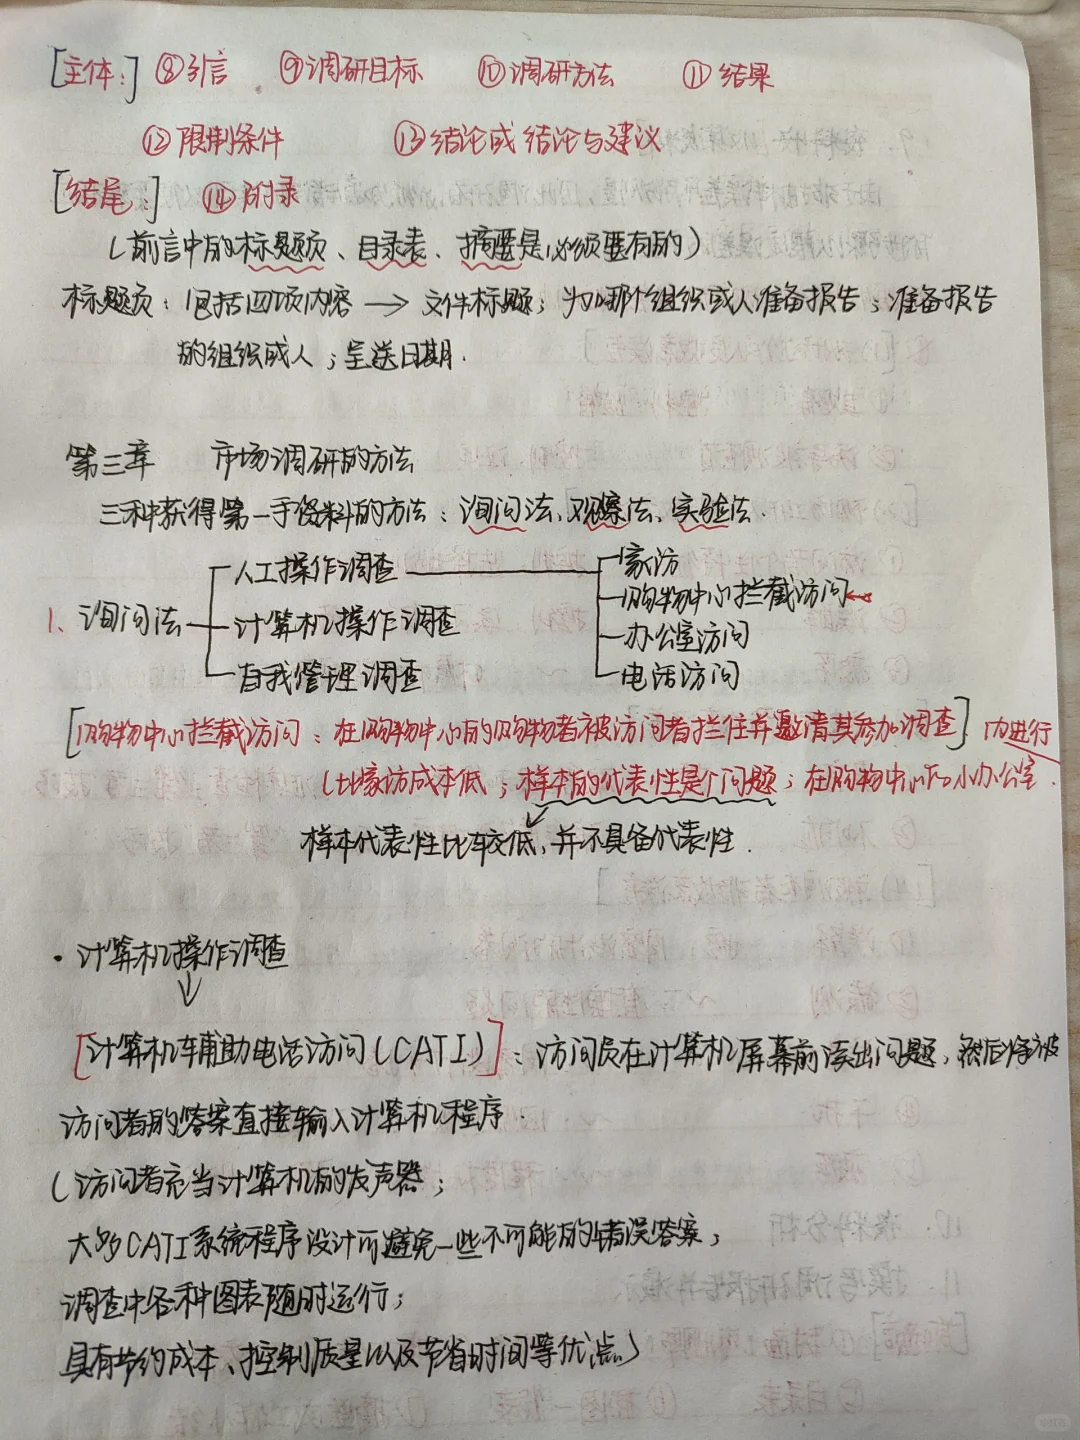 [主体:] ⑧引言 ⑨调研目标 ⑩调研方法 ⑪结果
⑫限制条件 ⑬结论或结论与建议
[结尾:] ⑭附录
(前言中的标题页、目录表、摘要是必须要有的)
标题页:包括四项内容→文件标题;为哪个组织或人准备报告;准备报告
的组织或人;呈送日期.
第三章 市场调研的方法
三种获得第一手资料的方法:询问法、观察法、实验法.
人工操作调查 家访
购物中心拦截访问
1、询问法 计算机操作调查 办公室访问
自我管理调查 电话访问
[购物中心拦截访问:在购物中心的购物者被访问者拦住并邀请其参加调查] 内进行
(比家访成本低;样本的代表性是个问题;在购物中心的小办公室.
样本代表性比较低,并不具备代表性.
·计算机操作调查
[计算机辅助电话访问(CATI)]:访问员在计算机屏幕前读出问题,然后将被
访问者的答案直接输入计算机程序.
(访问者充当计算机的发声器;
大多CATI系统程序设计可避免一些不可能的错误答案;
调查中各种图表随时运行;
具有节约成本、控制质量以及节省时间等优点)